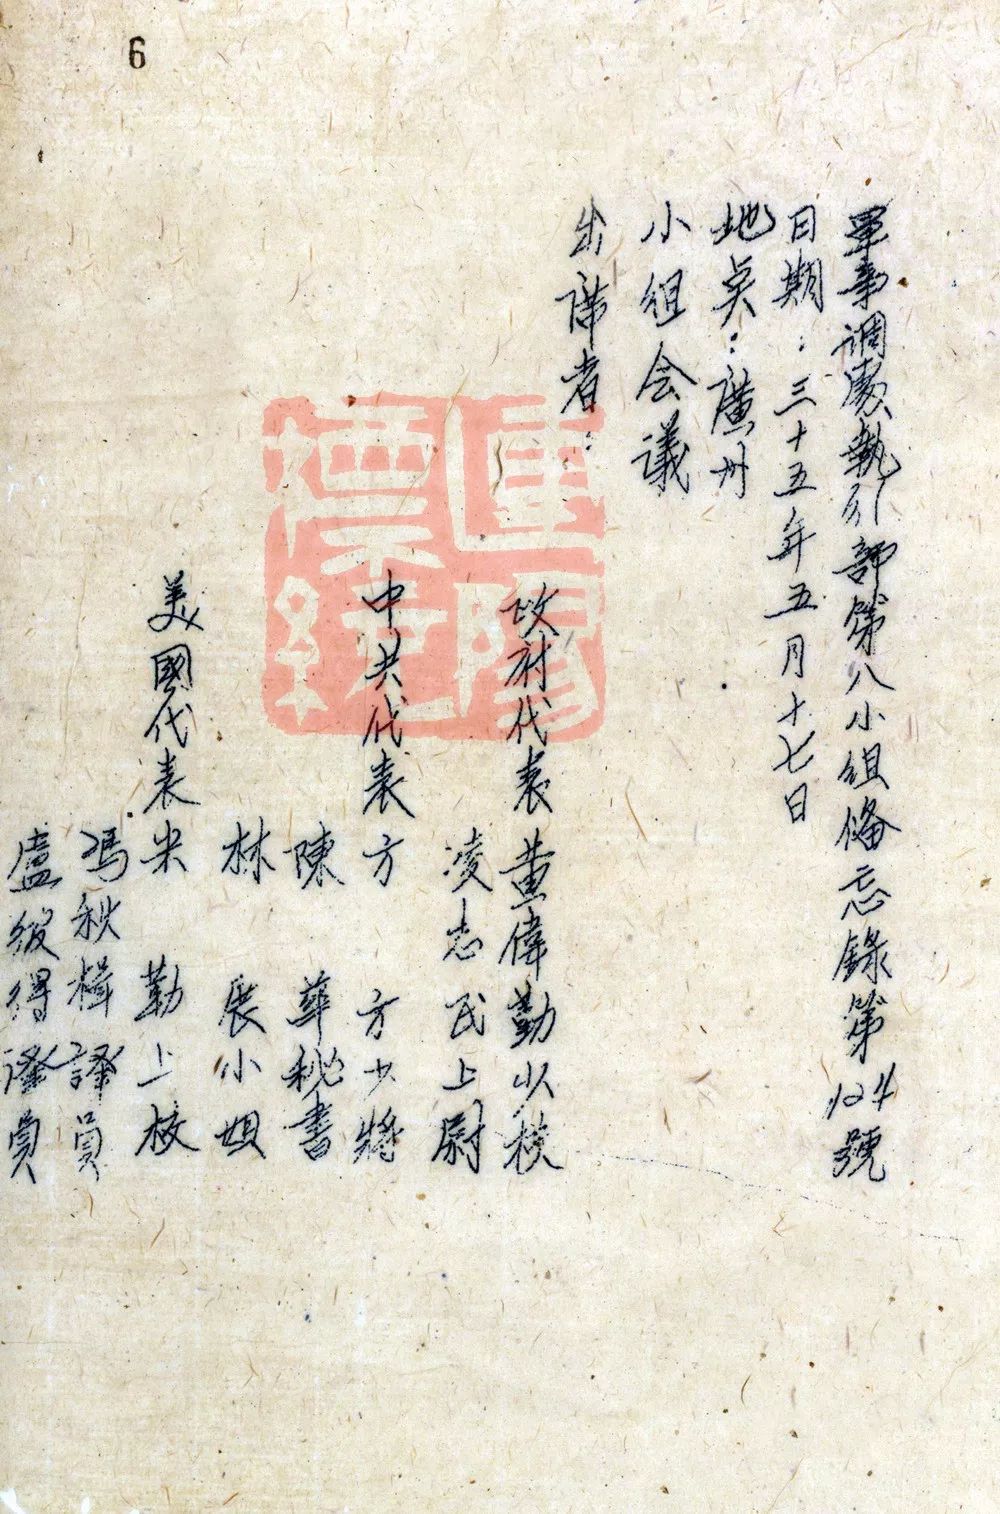 6
軍事調處執行部第八小組俻忘錄第124號
日期：三十五年五月十七日
地点：廣州
小組会議
出席者：
政府代表 黄偉勤少校
凌志民上尉
中共代表 方方少將
陳華秘書
林展小姐
美國代表 米勒上校
馮秋楫譯員
盧彼得譯員